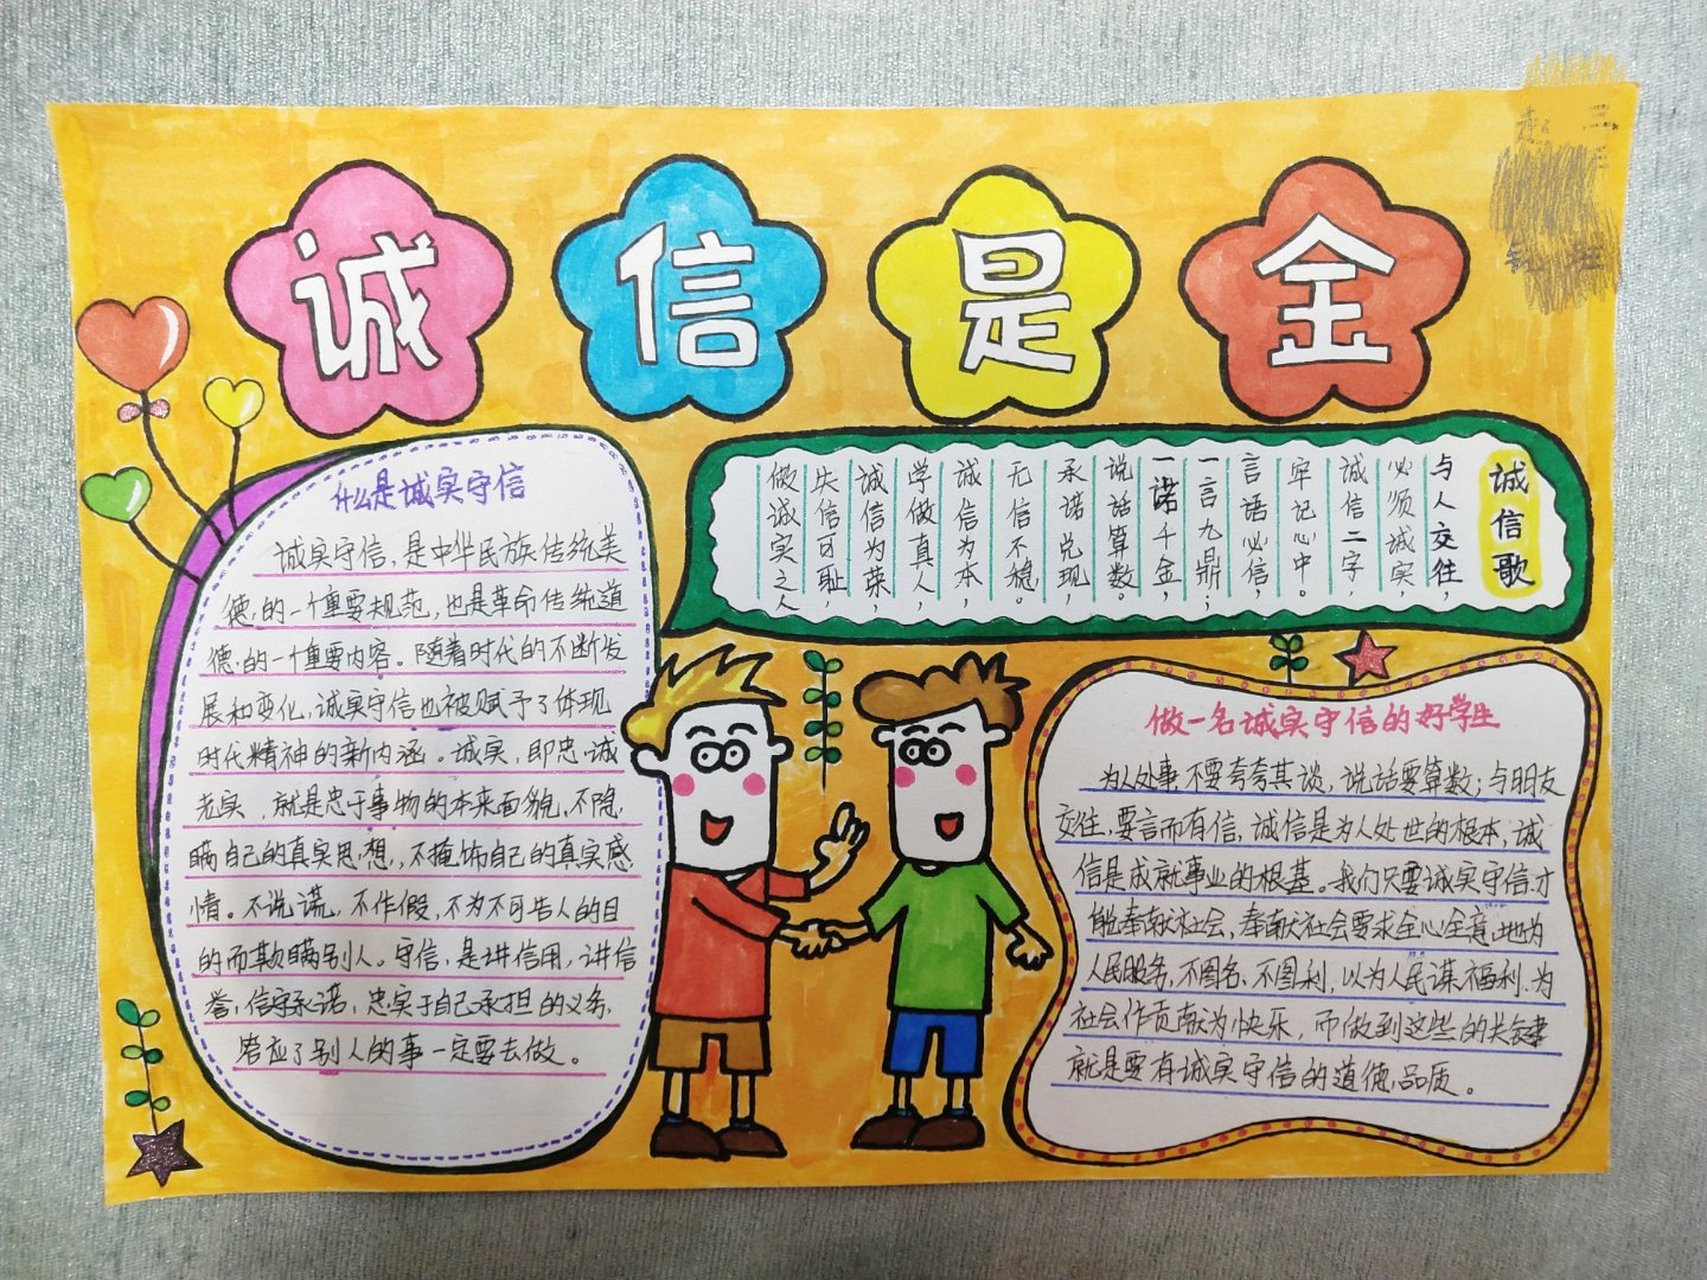 诚信是金
什么是诚实守信
诚实守信,是中华民族传统美
德的一个重要规范,也是革命传统道
德的一个重要内容。随着时代的不断发
展和变化,诚实守信也被赋予了体现
时代精神的新内涵。诚实,即忠诚
老实,就是忠于事物的本来面貌,不隐
瞒自己的真实思想,不掩饰自己的真实感
情。不说谎,不作假,不为不可告人的目
的而欺瞒别人。守信,是讲信用,讲信
誉,信守承诺,忠实于自己承担的义务,
答应了别人的事一定要去做。
诚信歌
与人交往,
必须诚实,
诚信二字,
牢记心中。
言语必信,
一言九鼎;
一诺千金,
说话算数。
承诺兑现,
无信不稳。
诚信为本,
学做真人,
诚信为荣,
失信可耻,
做诚实之人
做一名诚实守信的好学生
为人处事,不要夸夸其谈,说话要算数;与朋友
交往,要言而有信,诚信是为人处世的根本,诚
信是成就事业的根基。我们只要诚实守信,才
能奉献社会,奉献社会要求全心全意地为
人民服务,不图名、不图利,以为人民谋福利、为
社会作贡献为快乐,而做到这些的关键
就是要有诚实守信的道德品质。